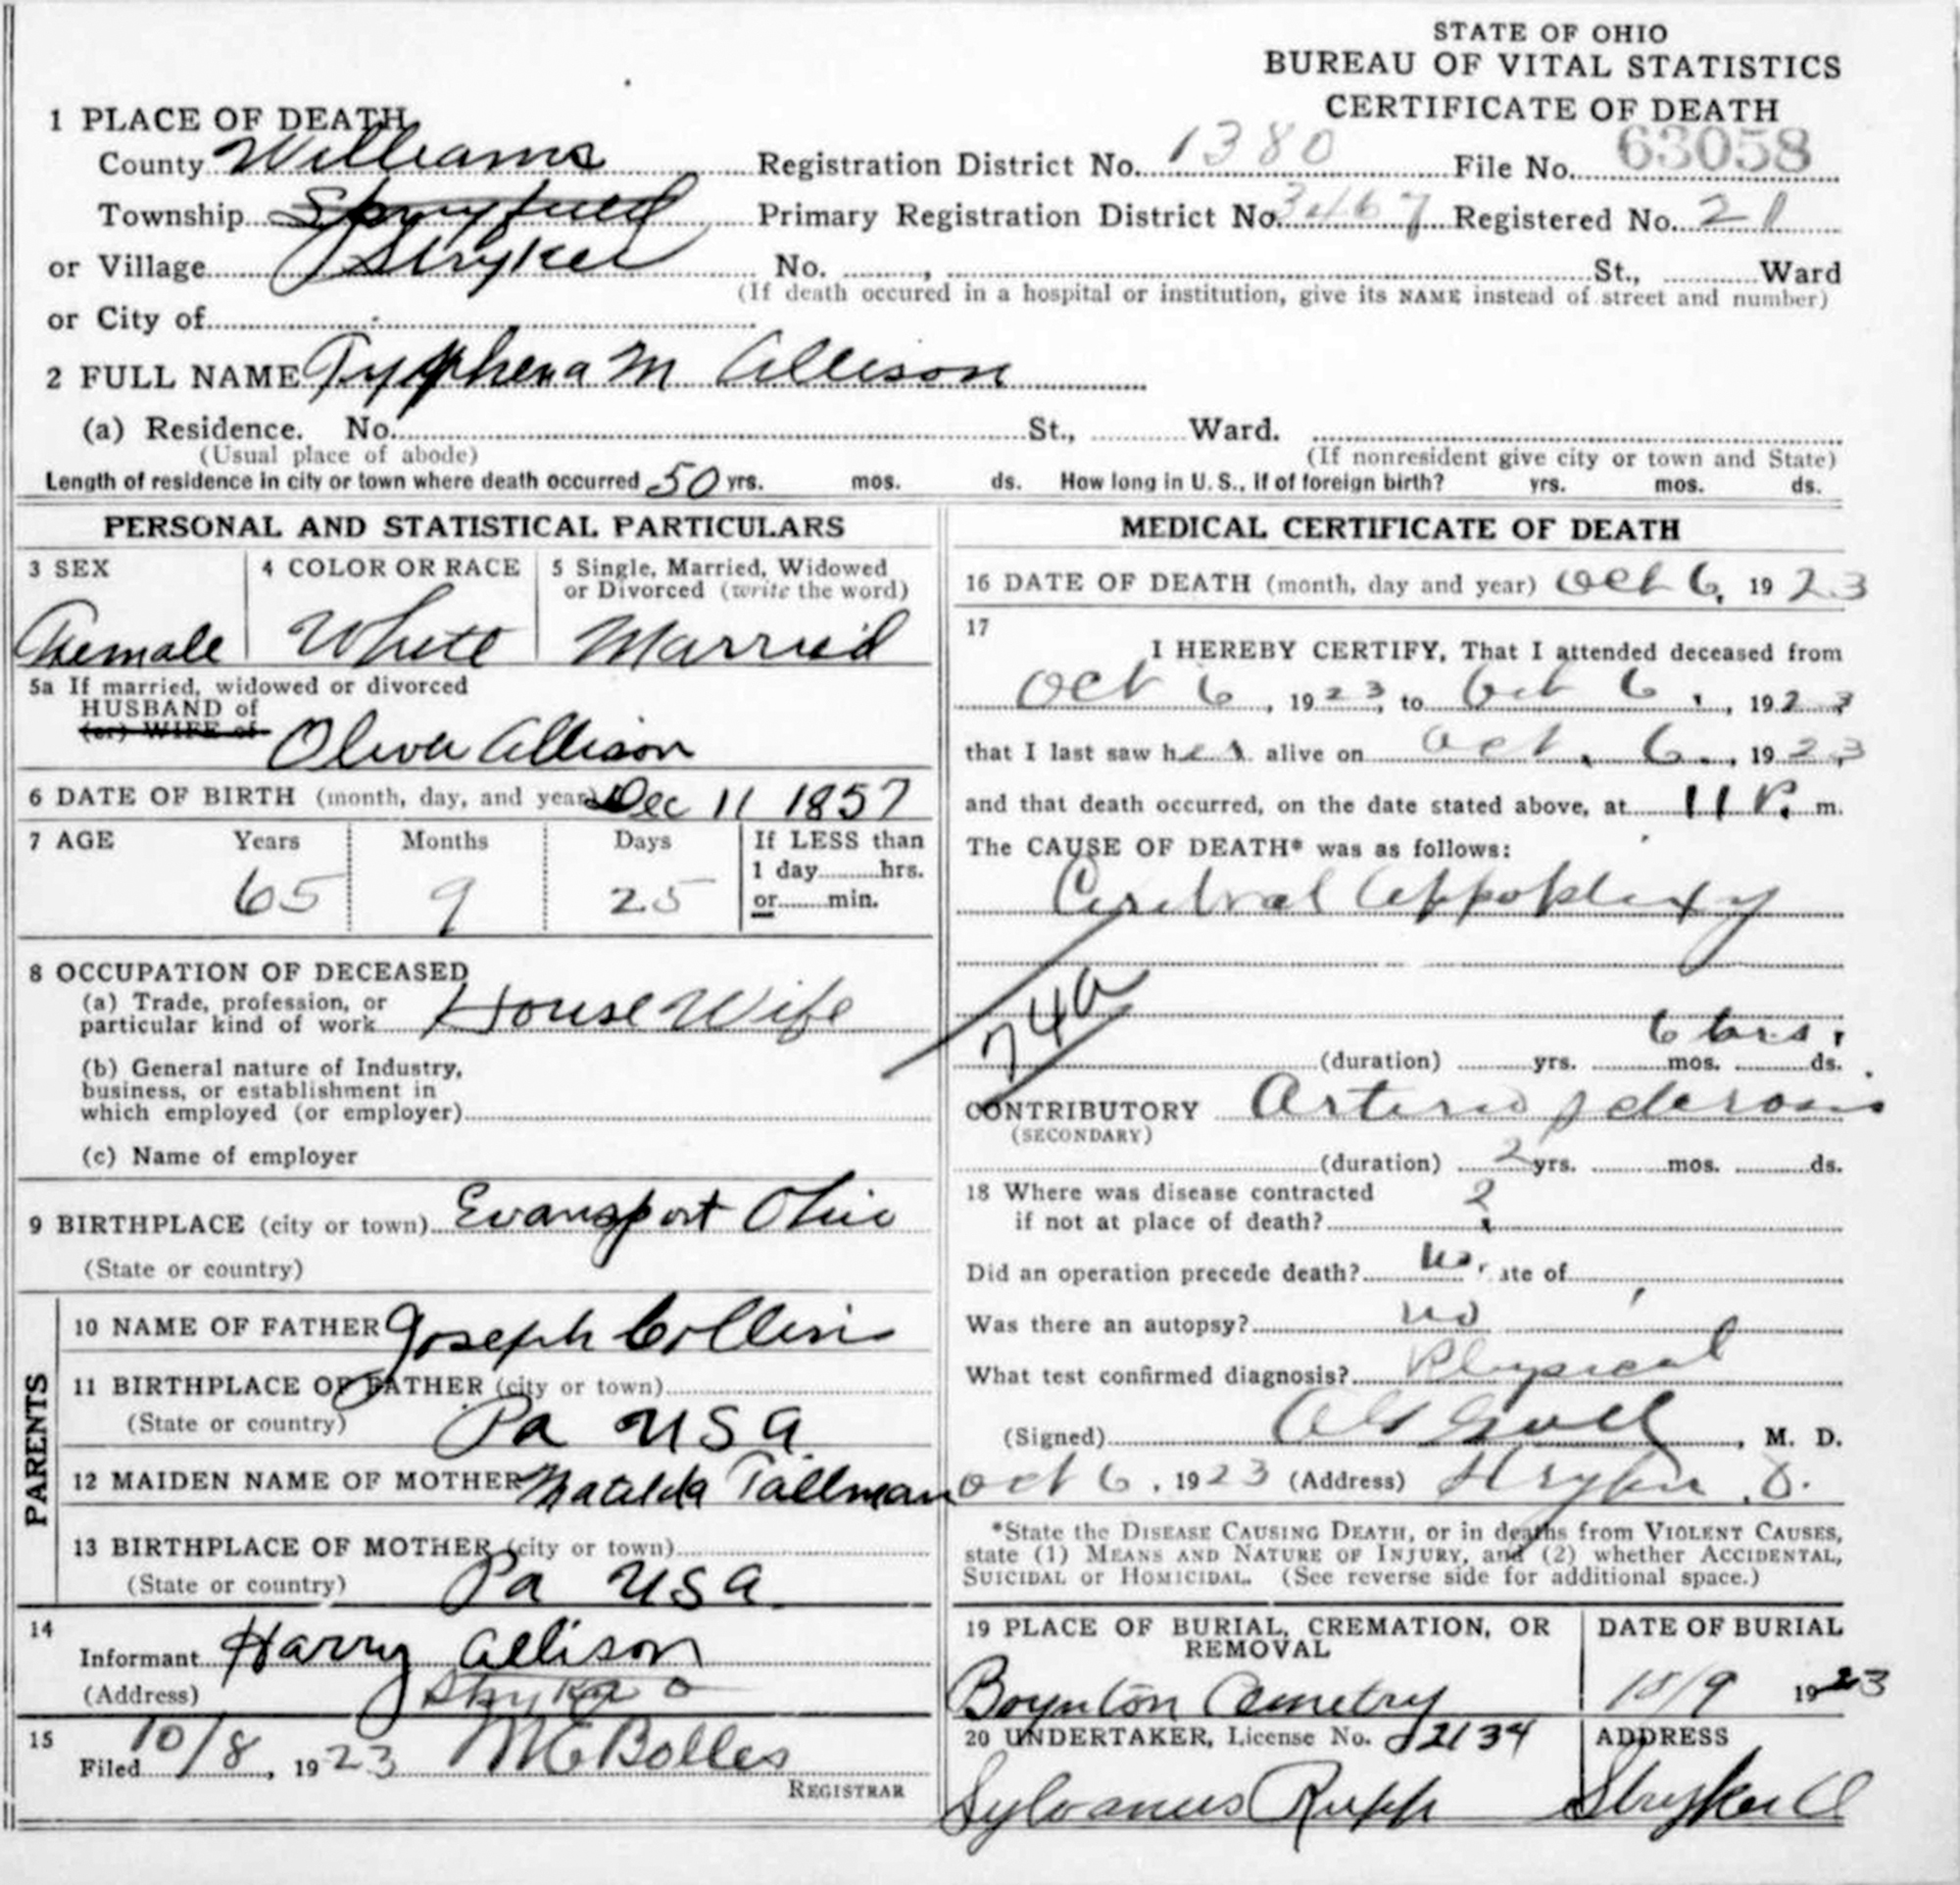 STATE OF OHIO
BUREAU OF VITAL STATISTICS
CERTIFICATE OF DEATH
1 PLACE OF DEATH
County Williams Registration District No. 1380 File No. 63058
Township Springfield Primary Registration District No. 3467 Registered No. 21
or Village Stryker No. , St., Ward
(If death occured in a hospital or institution, give its NAME instead of street and number)
or City of
2 FULL NAME Tryphena M Allison
(a) Residence. No. St., Ward.
(Usual place of abode) (If nonresident give city or town and State)
Length of residence in city or town where death occurred 50 yrs. mos. ds. How long in U. S., if of foreign birth? yrs. mos. ds.
PERSONAL AND STATISTICAL PARTICULARS
3 SEX 4 COLOR OR RACE 5 Single, Married, Widowed
or Divorced (write the word)
Female White Married
5a If married, widowed or divorced
HUSBAND of
(or) WIFE of Oliver Allison
6 DATE OF BIRTH (month, day, and year) Dec 11 1857
7 AGE Years Months Days If LESS than
1 day hrs.
65 9 25 or min.
8 OCCUPATION OF DECEASED
(a) Trade, profession, or
particular kind of work House Wife
(b) General nature of Industry,
business, or establishment in
which employed (or employer)
(c) Name of employer
9 BIRTHPLACE (city or town) Evansport Ohio
(State or country)
PARENTS
10 NAME OF FATHER Joseph Collins
11 BIRTHPLACE OF FATHER (city or town)
(State or country) Pa USA
12 MAIDEN NAME OF MOTHER Matalda Tallman
13 BIRTHPLACE OF MOTHER (city or town)
(State or country) Pa USA
14
Informant Harry Allison
(Address) Stryker O
15
Filed 10/8, 1923 M E Bolles
REGISTRAR
MEDICAL CERTIFICATE OF DEATH
16 DATE OF DEATH (month, day and year) Oct 6, 1923
17
I HEREBY CERTIFY, That I attended deceased from
Oct 6, 1923, to Oct 6, 1923
that I last saw her alive on Oct. 6, 1923
and that death occurred, on the date stated above, at 11 P. m.
The CAUSE OF DEATH* was as follows:
Cerebral Appoplexy
74a
6 hrs.
(duration) yrs. mos. ds.
CONTRIBUTORY Arterio sclerosis
(SECONDARY)
(duration) 2 yrs. mos. ds.
18 Where was disease contracted
if not at place of death? ?
Did an operation precede death? no. ate of
Was there an autopsy? no
What test confirmed diagnosis? Physical
(Signed) , M. D.
Oct 6, 1923 (Address) Stryker, O.
*State the DISEASE CAUSING DEATH, or in deaths from VIOLENT CAUSES,
state (1) MEANS AND NATURE OF INJURY, and (2) whether ACCIDENTAL,
SUICIDAL or HOMICIDAL. (See reverse side for additional space.)
19 PLACE OF BURIAL, CREMATION, OR
REMOVAL
DATE OF BURIAL
Boynton Cemetry 10/9 1923
20 UNDERTAKER, License No. 2134 ADDRESS
Sylvanus Rupp Stryker O